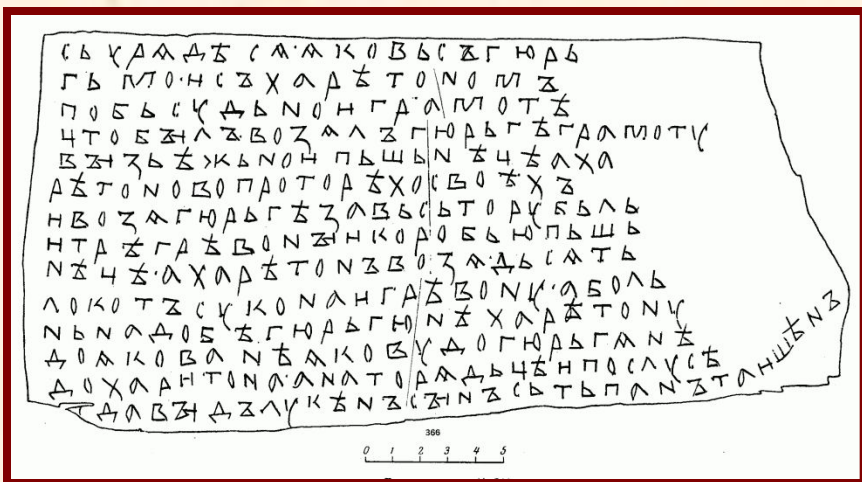 СЬ УРѦДѢ СѦ·ѦКОВЬСЪГЮРЬ
ГЬ МО·ИСЪХАРѢТОНОМЪ
ПОБЬСУДЬНОИГРА·АМОТѢ
ЦТОБЪІЛЪ·ВОЗѦЛЪГЮРЬГѢГРАМОТУ
ВЪІЗЬѢЖЬНОИ ПЬШЬНѢЦѢАХА
РѢТОНОВОПРОТОРѢХОСВОѢХЪ
ИВОЗѦГЮРЬГѢЗАВЬСЬТОРУБЬЛЬ
ИТРѢГРѢВОНЪІИКОРОБЬЮПЬШЬ
НѢЦѢ·АХАРѢТОНЪВОЗѦ·ДЬСѦТЬ
ЛОКОТЪСУКОНАИГРѢВОНУ·АБОЛЬ
НЬНАДОБѢГЮРЬГЮНѢХАРѢТОНУ
ДОѦКОВАНѢѦКОВУДОГЮРЬГѦНѢ
ДОХАРИТОНА·АНАТОРѦДЬЦѢИПОСЛУСѢ
ДАВЪІДЪЛУКѢНЪСЪІНЪСЬТЬПАНЪТАИШѢНЪ
366
0 1 2 3 4 5